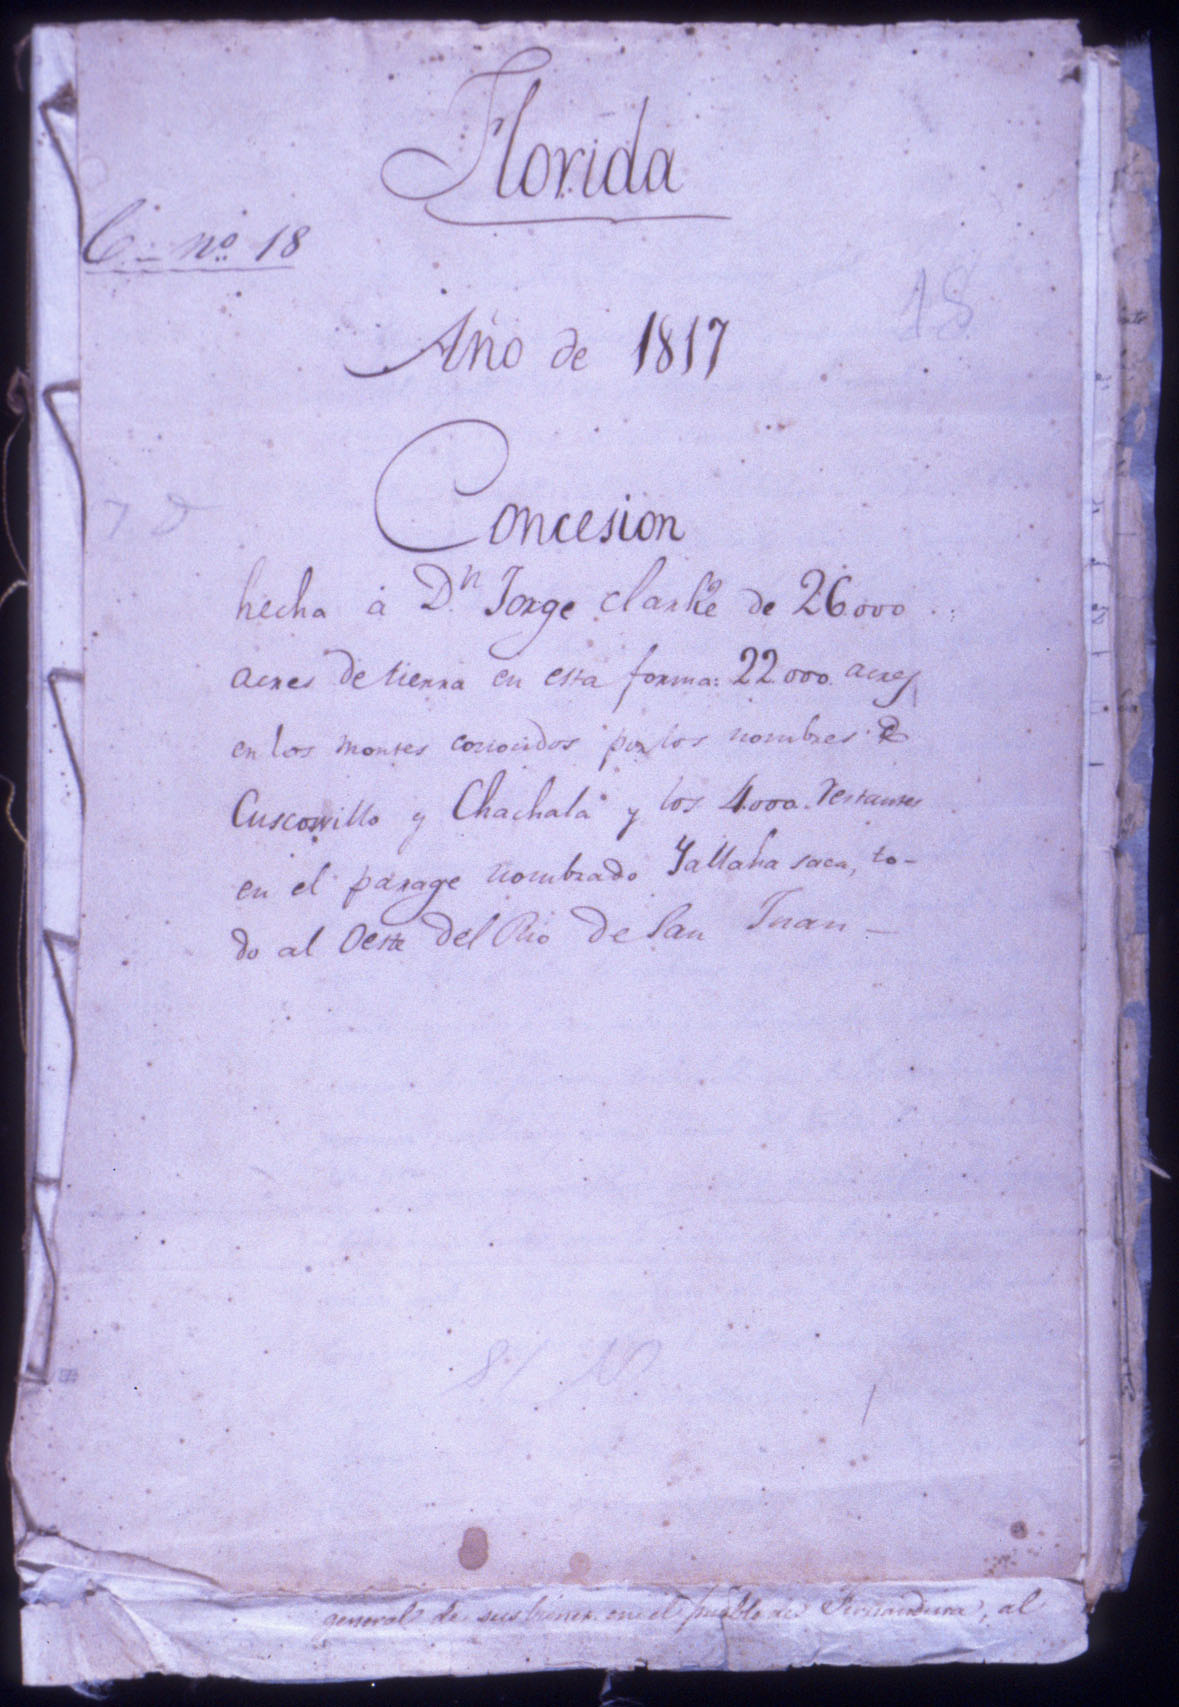 Florida
C. nº 18
18
Año de 1817
Concesion
hecha à Dn. Jorge Clarke de 26.000
acres de tierra en esta forma: 22.000. acres
en los montes conocidos por los nombres de
Cuscowillo y Chachala y los 4.000. restantes
en el parage nombrado Yallaha saca, to-
do al Oeste del Rio de San Juan —
general de sus bienes en el pueblo de Fernandina, al